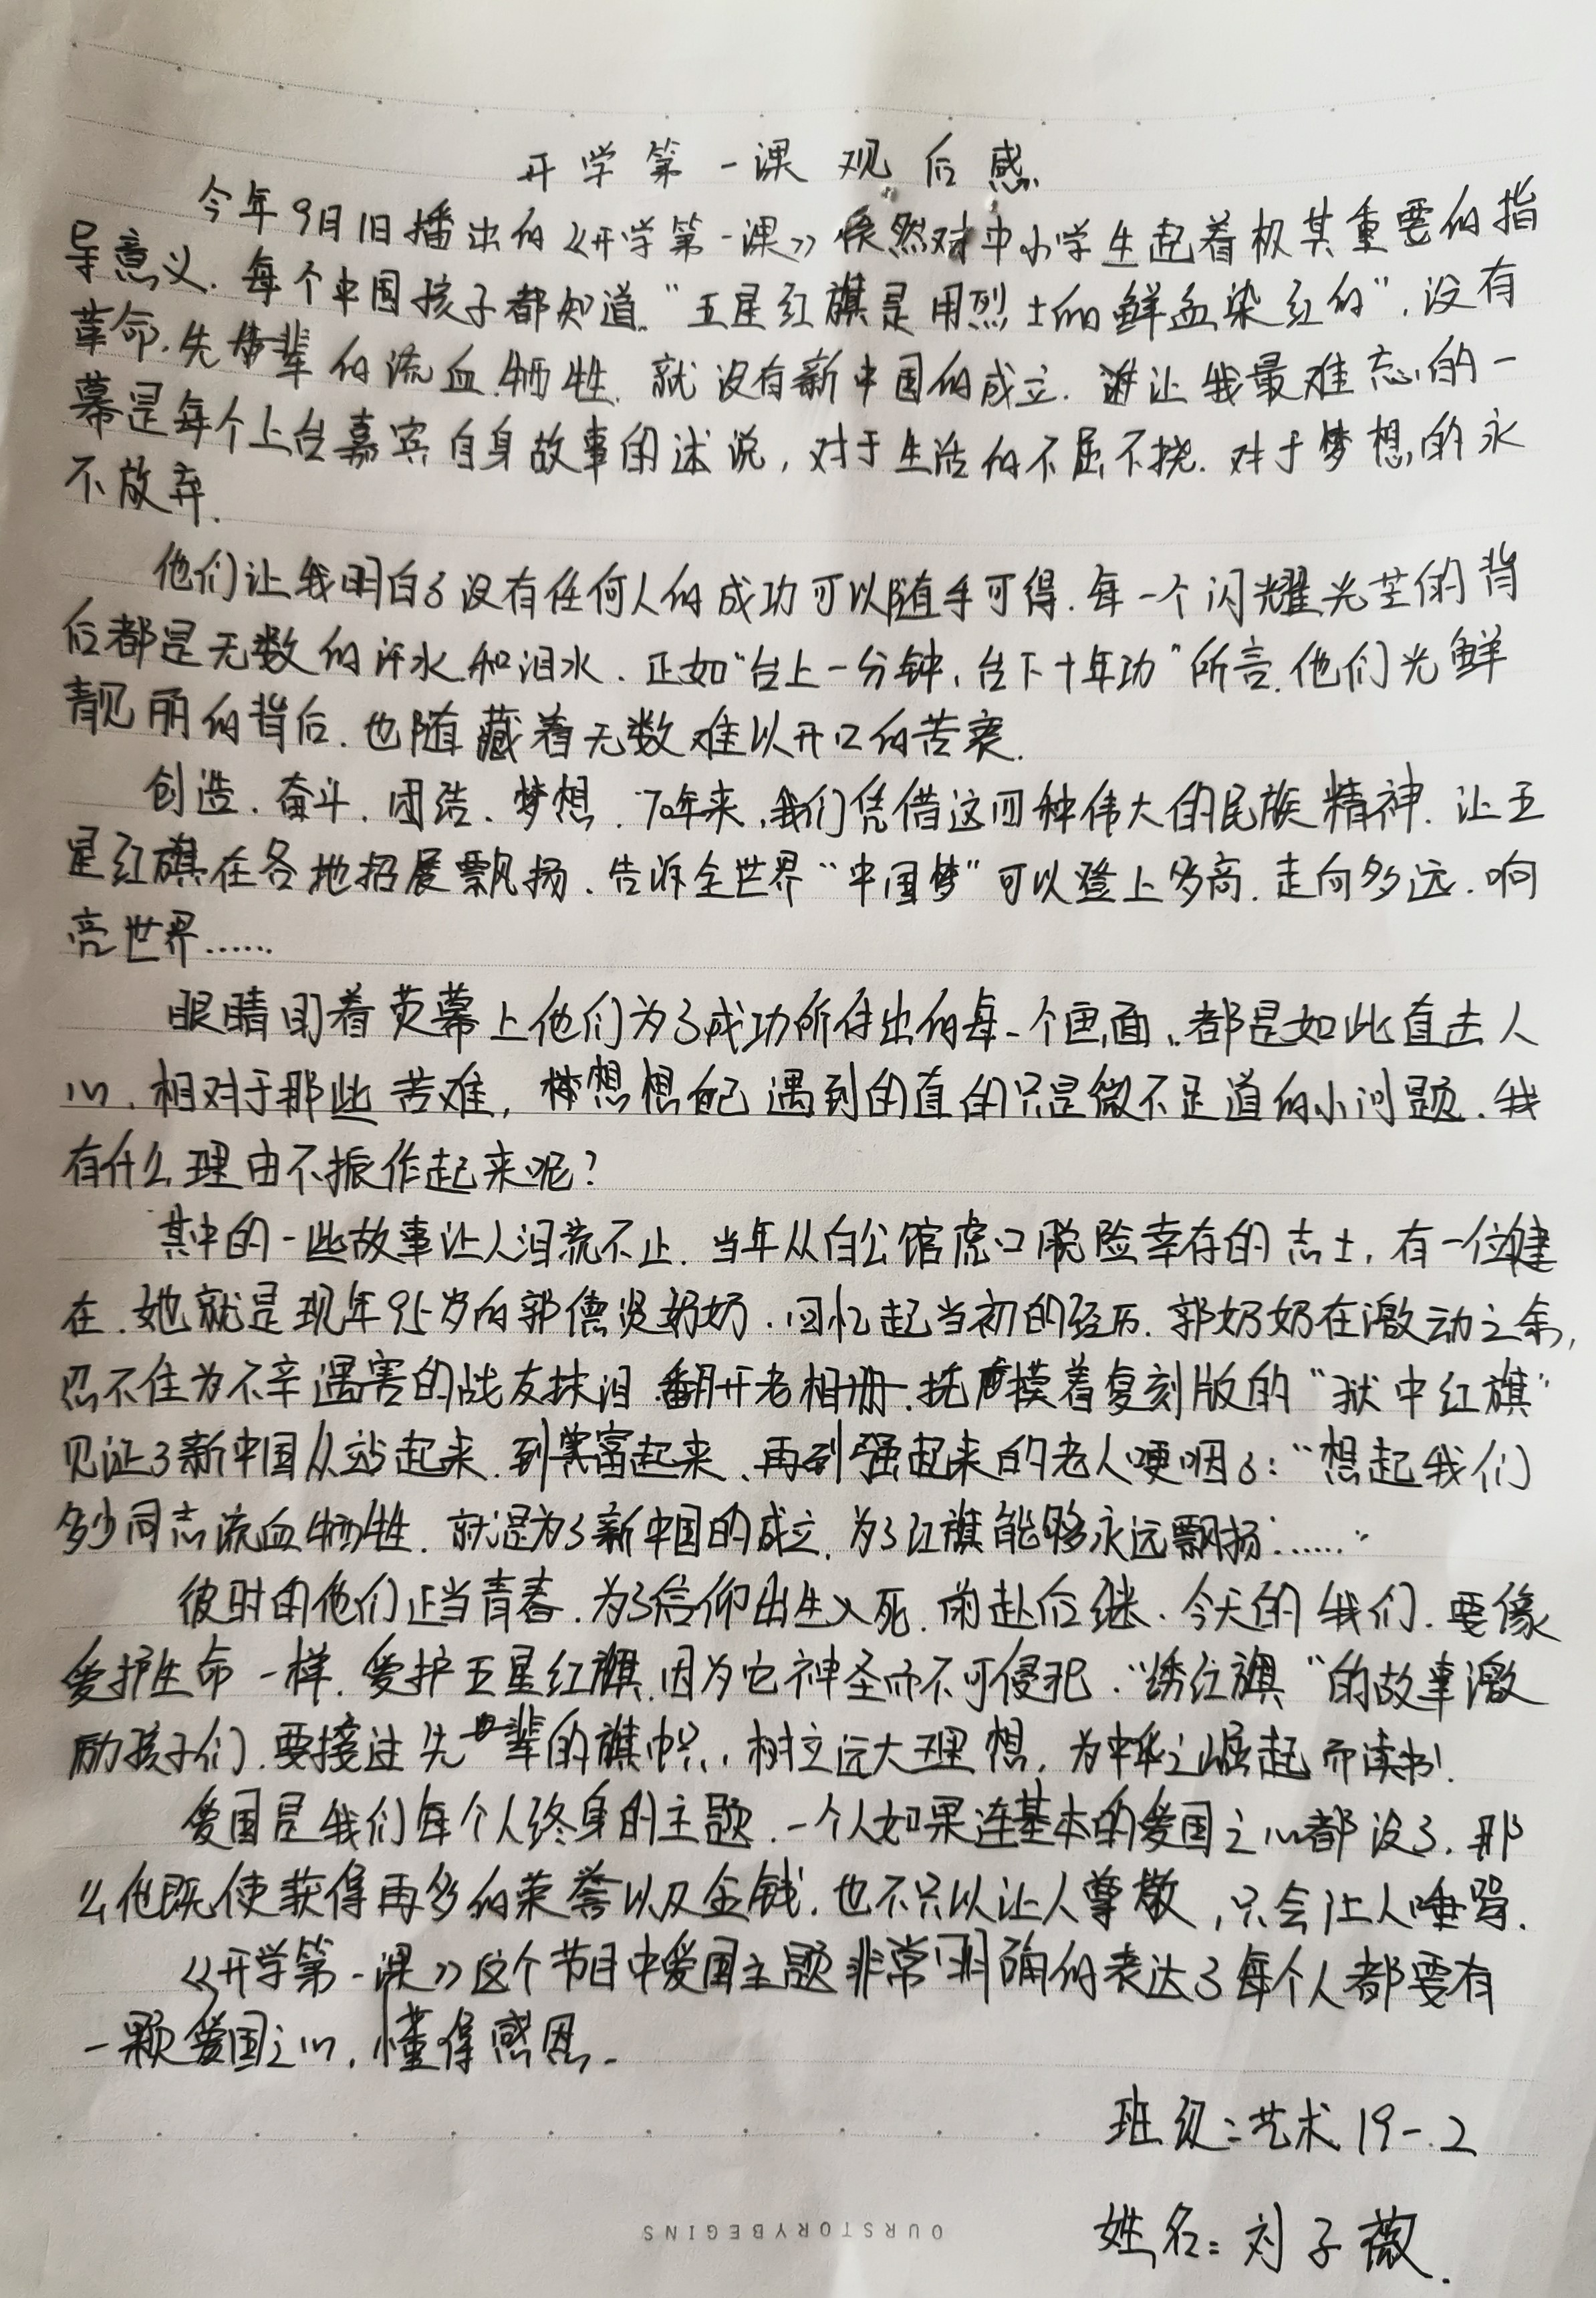 开学第一课观后感
今年9月1日播出的《开学第一课》依然对中小学生起着极其重要的指
导意义.每个中国孩子都知道."五星红旗是用烈士的鲜血染红的",没有
革命.先辈的流血牺牲.就没有新中国的成立.让我最难忘的一
幕是每个上台嘉宾自身故事的述说,对于生活的不屈不挠.对于梦想的永
不放弃.
他们让我明白了没有任何人的成功可以随手可得.每一个闪耀光芒的背
后都是无数的汗水和泪水.正如"台上一分钟,台下十年功"所言.他们光鲜
靓丽的背后.也随藏着无数难以开口的苦衷.
创造.奋斗.团结.梦想.70年来,我们凭借这四种伟大的民族精神.让五
星红旗在各地招展飘扬.告诉全世界"中国梦"可以登上多高.走向多远.响
亮世界……
眼睛盯着荧幕上他们为了成功所付出的每一个画面、都是如此直击人
心.相对于那些苦难,想想自己遇到的真的只是微不足道的小问题.我
有什么理由不振作起来呢?
其中的一些故事让人泪流不止.当年从白公馆虎口脱险幸存的志士,有一位健
在.她就是现年95岁的郭德贤奶奶.回忆起当初的经历.郭奶奶在激动之余,
忍不住为不幸遇害的战友抹泪.翻开老相册.抚摸着复刻版的"狱中红旗"
见证了新中国从站起来.到富起来、再到强起来的老人哽咽了:"想起我们
多少同志流血牺牲.就是为了新中国的成立.为了红旗能够永远飘扬……"
彼时的他们正当青春.为了信仰出生入死.前赴后继.今天的我们.要像
爱护生命一样.爱护五星红旗.因为它神圣而不可侵犯."绣红旗"的故事激
励孩子们.要接过先辈的旗帜.树立远大理想,为中华之崛起而读书!
爱国是我们每个人终身的主题.一个人如果连基本的爱国之心都没了.那
么他既使获得再多的荣誉以及金钱.也不只以让人尊敬,只会让人唾骂.
《开学第一课》这个节目中爱国主题非常明确的表达了每个人都要有
一颗爱国之心,懂得感恩.
班级:艺术19-2
姓名:刘子薇.
OURSTORYBEGINS